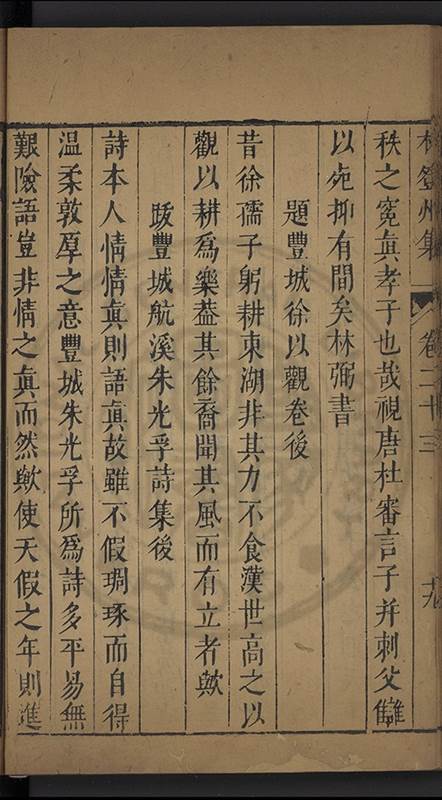 林登州集 卷二十三 十九
秩之寃真孝子也哉視唐杜審言子并刺父讎
以死抑有間矣林弼書
題豐城徐以觀卷後
昔徐孺子躬耕東湖非其力不食漢世高之以
觀以耕爲樂葢其餘裔聞其風而有立者歟
跋豐城航溪朱光孚詩集後
詩本人情情真則語真故雖不假琱琢而自得
温柔敦厚之意豐城朱光孚所爲詩多平易無
艱險語豈非情之真而然歟使天假之年則進